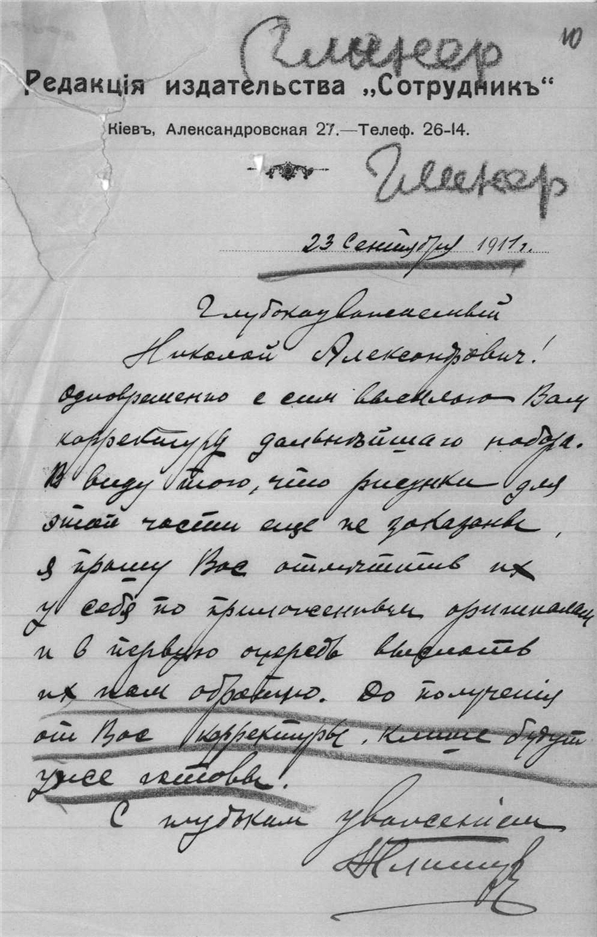 10
Глинер
Редакція издательства „Сотрудникъ“
Кіевъ, Александровская 27.—Телеф. 26-14.
Глинер
23 Сентября 1911 г.
Глубокоуважаемый
Николай Александрович!
Одновременно с сим высылаю Вам
корректуру дальнѣйшаго набора.
В виду того, что рисунки для
этой части еще не заказаны,
я прошу Вас отмѣтить их
у себя по приложенным оригиналам
и в первую очередь выслать
их нам обратно. До полученія
от Вас корректуры, клише будут
уже готовы.
С глубоким уваженіем